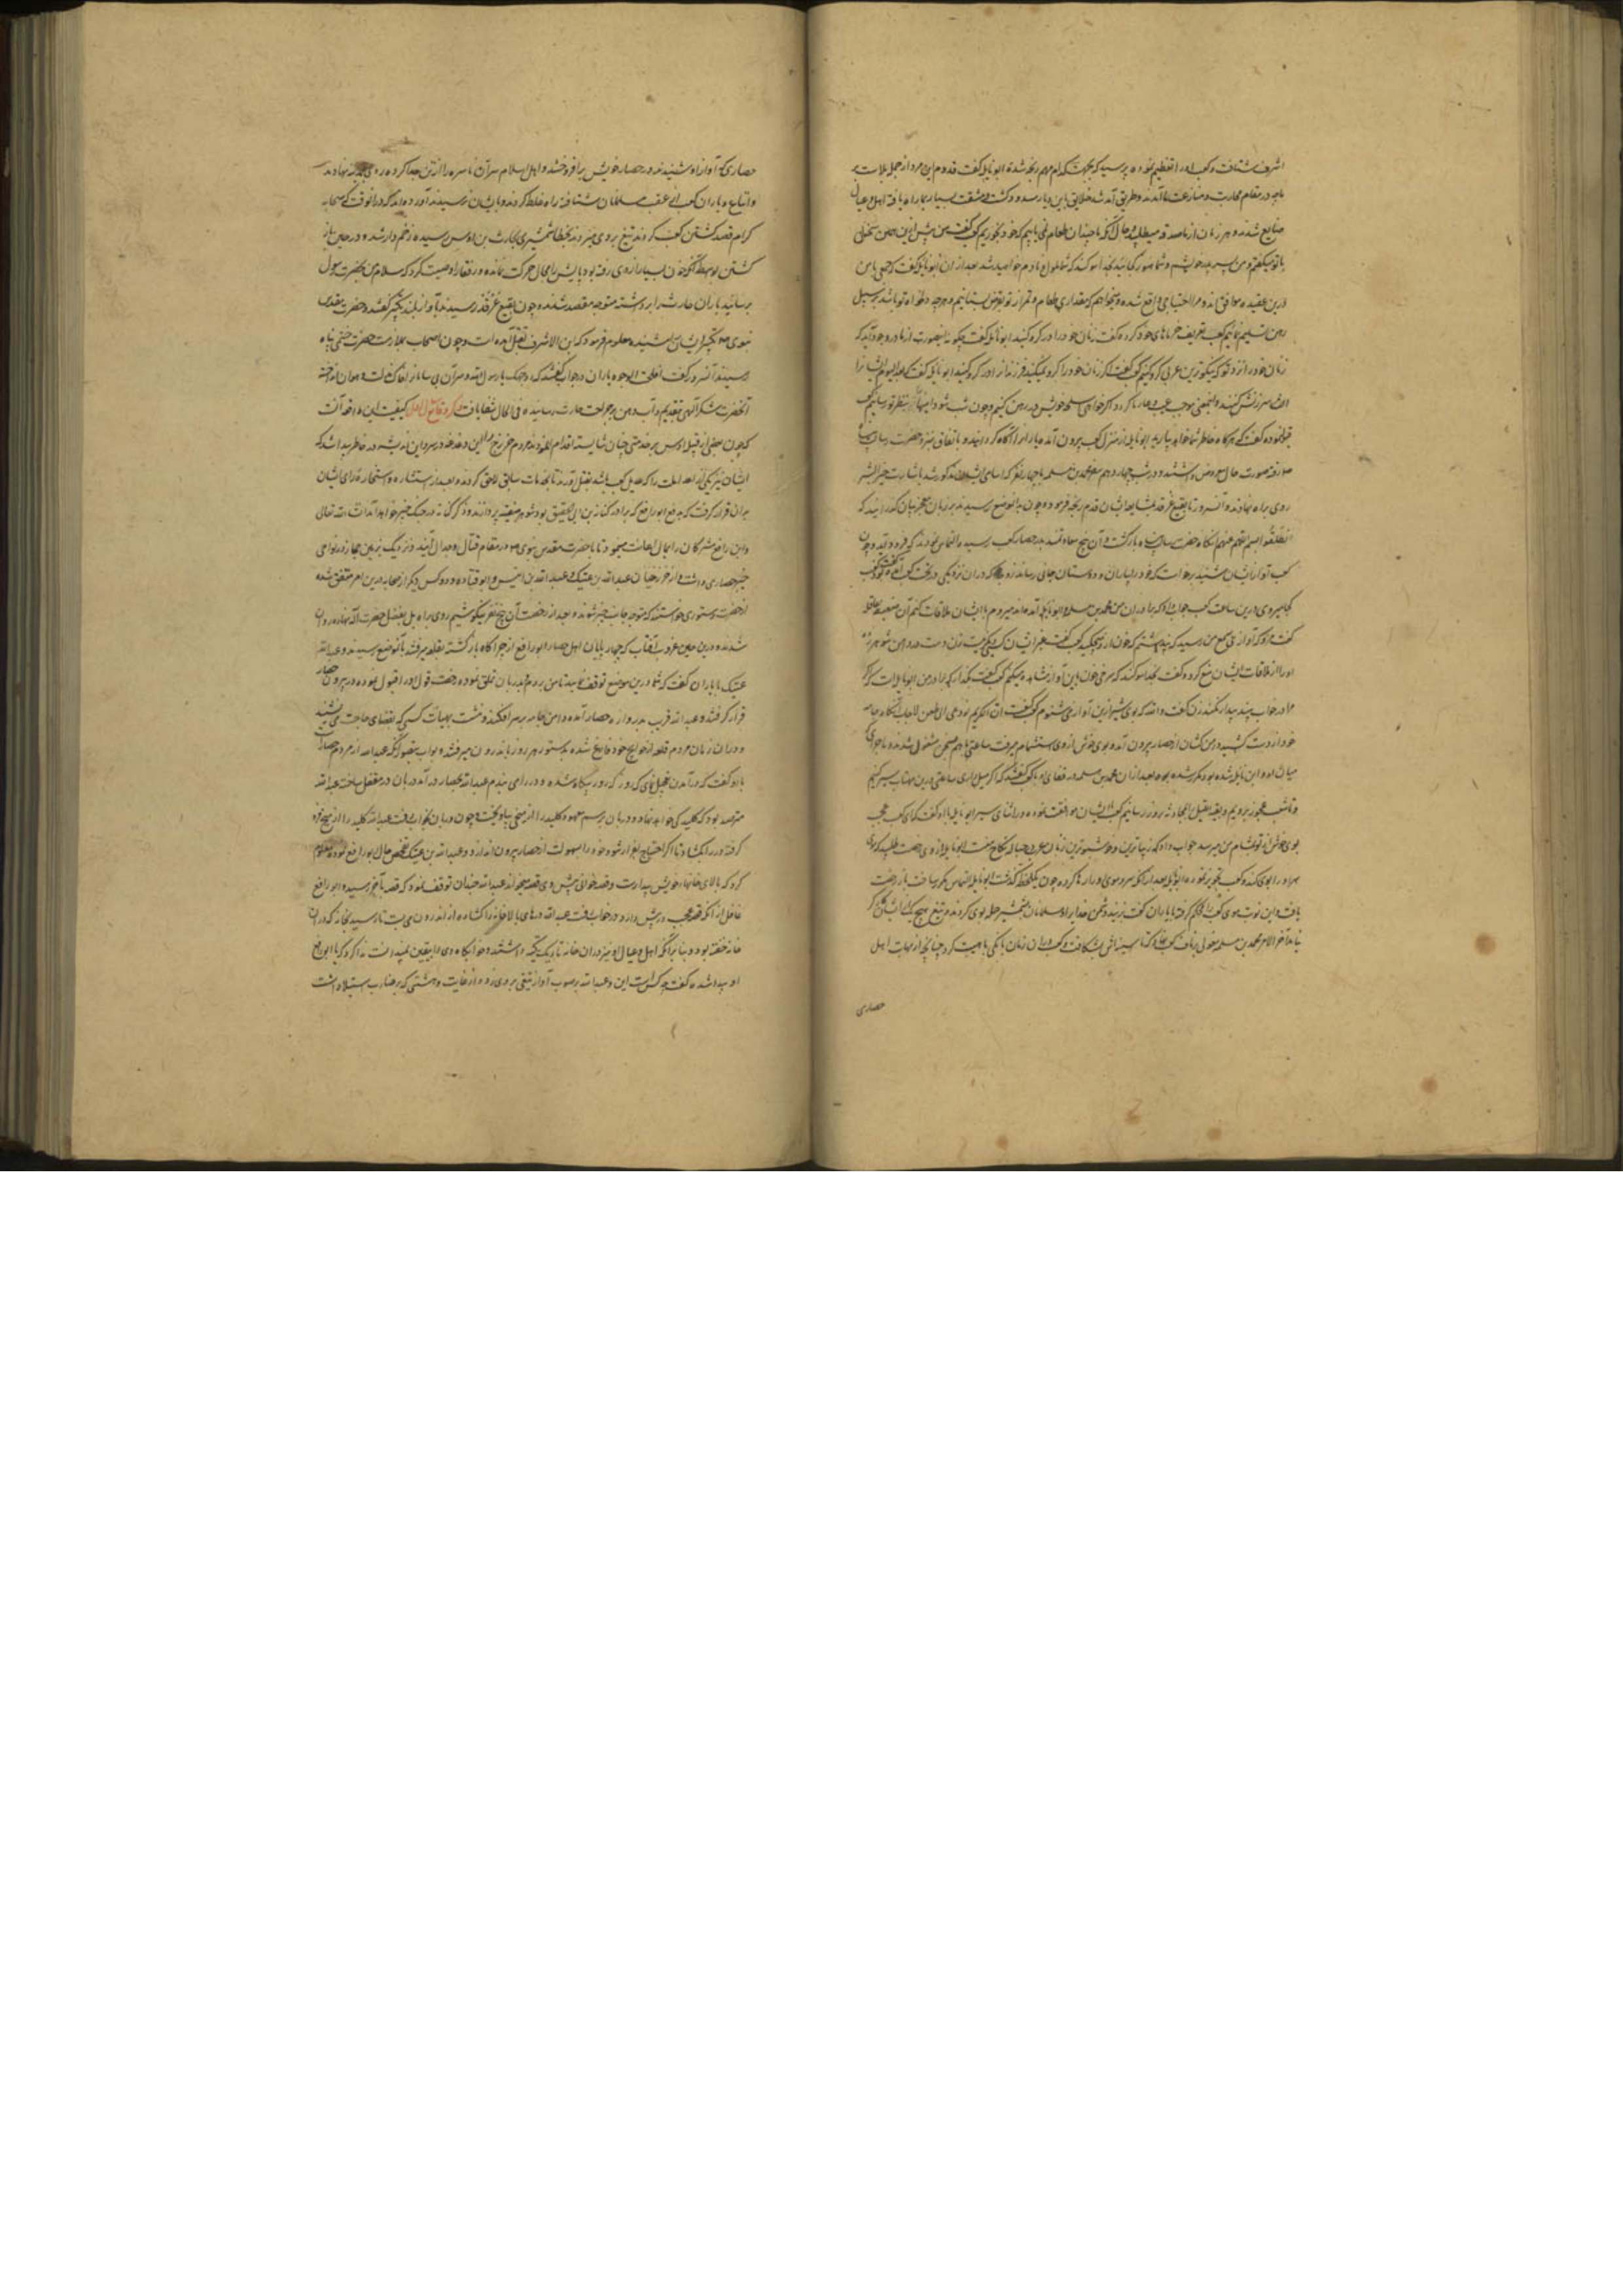 اشرف شتافت و کعب او را تعظیم نموده پرسید که بجهت کدام مهم رنجه شدهٔ ابو نایله گفت قدوم این مرد از جمله بلاست
ما در مقام محاربت و منازعت ما آمدند و طریق آمد شد خلایق باین دیار مسدود کشت و مشقت بسیار بما راه یافته اهل و عیال
ضایع شدند و هر زمان از ما صدقه میطلبد و حال آنکه ما چندان طعام نمی یابیم که خود بخوریم کعب گفت من پیش ازین همین سخنان
با تو میکفتم و من پسر پدر خویشم و شما هنوز کجائید بخدا سوکند که شما ملول و نادم خواهید شد بعد از آن ابو نایله گفت که جمعی با من
درین عقیده موافق اند و مرا احتیاجی واقع شده و میخواهم که مقداری طعام و تمر از تو بقرض بستانیم و هرچه دلخواه تو باشد بر سبیل
رهن تسلیم نمائیم کعب تعریف خرماهای خود کرده گفت زنان خود را در کرو کنید ابو نایله گفت چگونه این صورت از ما در وجود آید که
زنان خود را نزد تو که نیکوترین عربی کرو کنیم کعب گفت اگر زنان خود را کرو نمیکنید فرزندان را در کرو کنید ابو نایله گفت که بعد الیوم ایشان را
سرزنش کنند و اینمعنی موجب عیب و عار ما کردد اگر خواهی سلحه خویش در رهن کنیم و چون شب شود اینها را بنظر تو رسانیم کعب
قبول نموده گفت که هرگاه خاطر شما خواهد بیارید ابو نایله از منزل کعب بیرون آمده یاران را آگاه گردانید و باتفاق نزد حضرت رسالت
رفته صورت حال معروض داشتند و در شب چهاردهم محمد بن مسلمه با چهار نفر که اسامی ایشان مذکور شد باشارت خیر البشر
روی براه نهادند و آنسرور تا بقیع غرقد بمشایعه ایشان قدم رنجه فرمود و چون بدانموضع رسیدند بر زبان معجز بیان گذرانید که
انطلقوا بسم الله اللهم اعنهم آنکاه حضرت رسالت پناه بازگشت و آن پنج سعادتمند بدر حصار کعب رسیده التماس نمودند که فرود آید و چون
کعب آواز ایشان شنید برخواست که خود را بیاران و دوستان جانی رساند زوجهٔ که در آن نزدیکی در تحت کعب آمده بود گفت
کجا میروی درین ساعت کعب جواب داد که برادران من محمد بن مسلمه و ابو نایله آمده اند میروم تا با ایشان ملاقات کنم آن ضعیفه
گفت مرو که آوازی بسمع من رسید که پنداشتم که خون از و میچکید کعب گفت غیر ایشان کسی دیگر نیست زن دست در دامن شوهر زده
او را از ملاقات ایشان منع کرد و گفت بخدا سوکند که سرخی خون باین آواز مشاهده میکنم کعب گفت بگذار که برادر من ابو نایله است که اگر
مرا در خواب بیند بیدار نکند زن گفت والله که بوی شر ازین آواز می شنوم کعب گفت ان الکریم لو دعی الی طعن لاجاب آنکاه جامه
خود از دست کشیده دامن کشان از حصار بیرون آمد و بوی خوش از وی استشمام میرفت ساعتی با هم بسخن مشغول شدند و ماجرای که
میان او و ابو نایله شده بود مکرر شده بود بعد از آن محمد بن مسلمه و رفقای او با کعب گفتند که اگر میل داری ساعتی درین مهتاب سیر کنیم
و تا شعب عجوز برویم و بقیه لیل را بمحادثه بروز رسانیم کعب با ایشان موافقت نموده در اثنای سیر ابو نایله با او گفت که ای کعب عجب
بوی خوش از تو بمشام من میرسد جواب داد که زیباترین و خوشبوترین زنان عرب در حباله نکاح منست ابو نایله از وی رخصت طلبید که
سر او را بوی کند و کعب تجویز نموده ابو نایله بعد از آنکه سر و موی او را رها کرده چون یکلحظه گذشت ابو نایله التماس مکرر ساخت باز رخصت
یافت و این نوبت موی کعب را محکم گرفته با یاران گفت بزنید دشمن خدا را و مسلمانان بشمشیر حمله بوی کردند و تیغ هیچ یک از ایشان کارگر
نیامد آخر الامر محمد بن مسلمه مغولی بر ناف کعب نهاد و کرد تا سینه اش شکافت و کعب در آن زمان بانکی با هیبت کرد چنانچه از نهایت اهل
حصاری
حصاری که آواز او شنیدند در حصار خویش برافروختند و اهل اسلام سر آن ناسره را از تن جدا کرده روی بمدینه نهادند
و اتباع و یاران کعب از عقب مسلمانان شتافته راه غلط کردند و بایشان نرسیدند آورده اند که در آنوقت که صحابه
کرام قصد کشتن کعب کردند تیغ بر وی میزدند بخطا شمشیری بحارث بن اوس رسیده زخم دار شد و در حین باز
کشتن بواسطه آنکه خون بسیار از وی رفته بود پایش را مجال حرکت نمانده و رفقا را وصیت کرد که سلام من بحضرت رسول
برسانید یاران حارث را برداشته متوجه مقصد شدند و چون ببقیع غرقد رسیدند بآواز بلند تکبیر گفتند و حضرت مقدس
نبوی صلعم تکبیر ایشان را شنیده معلوم فرمود که ابن الاشرف بقتل آمده است و چون اصحاب بملازمت حضرت ختمی پناه
رسیدند آنسرور گفت افلحت الوجوه یاران در جواب گفتند که و وجهک یا رسول الله و سر آن بی سامان را بر خاک مذلت و هوان انداخته
آنحضرت شکر آلهی بتقدیم رسانید و آب دهن بر جراحت حارث رسانیده فی الحال شفا یافت ذکر وقایع ابو رافع کیفیت این واقعه آنست
که چون بعضی از قبیله اوس بر خدمتی چنان شایسته اقدام نمودند مردم خزرج را این دغدغه در سر و این اندیشه در خاطر پیدا شد که
ایشان نیز یکی از اعداء ملت را که عدیل کعب باشد بقتل آورند تا بخدمات سابق لاحق کردند و بعد از استشاره و استخاره رای ایشان
بران قرار گرفت که بدفع ابو رافع که برادر کنانه بن ابی الحقیق بود شوهر صفیه پردازند و ذکر کنانه در جنگ خیبر خواهد آمد انشاء الله تعالی
و ابو رافع مشرکان را بمال اعانت مینمود تا با حضرت مقدس نبوی صلعم در مقام قتال و جدال آیند و نزدیک بزمین حجاز در نواحی
خیبر حصاری داشت و از خزرجیان عبد الله بن عتیک و عبد الله بن انیس و ابو قتاده و دو کس دیگر از صحابه درین امر متفق شده
از حضرت دستوری خواستند که متوجه جانب خیبر شوند و بعد از رخصت آن پنج نفر نیکو شیم روی براه بفضل حضرت آله نهاده روان
شدند و درین حین غروب آفتاب که چهارپایان اهل حصار ابو رافع از چراگاه بازگشته بقلعه میرفتند بآنموضع رسیدند و عبد الله
عتیک با یاران گفت که شما درین موضع توقف نمایید تا من بروم و بدربان تملق نموده رفقت قول او را قبول نموده در بیرون حصار
قرار گرفتند و عبد الله قریب بدروازه حصار آمده دامن جامه بر سر افکند و نشست بهیأت کسی که بقضای حاجت می نشیند
و در آن زمان مردم قلعه از حوایج خود فارغ شده بدستور هر روز باندرون میرفتند و بواب بتصور آنکه عبد الله از مردم حصار است
با او گفت که در آمدن تعجیل نمای که روز بیگاه شده و در را می بندم عبد الله بحصار در آمد دربان در مقفل ساخت عبد الله
مترصد بود که کلید کجا خواهد نهاد و دربان برسم معهود کلید را از میخی بیاویخت و چون دربان بخواب رفت عبد الله کلید را از میخ
گرفته در را بگشاد تا اگر احتیاج بفرار شود خود را بسهولت از حصار بیرون اندازد و عبد الله بن عتیک تفحص حال ابو رافع نموده معلوم
کرد که بالای خانها خویش بیدارست و قصه خوانی پیش وی قصه میخواند عبد الله چندان توقف نمود که قصه بآخر رسید و ابو رافع
غافل از آنکه قصه عجب در پیش دارد در خواب رفت عبد الله درهای بالاخانه را کشاده از اندرون می بست تا رسید بخانه که در آن
خانه خفته بود و بنا بر آنکه اهل و عیال او نیز در آن خانه تاریک تکیه داشتند و خوابگاه وی را بیقین نمیدانست ندا کرد که یا ابو رافع
او بیدار شده گفت چه کس است این و عبد الله بر صوب آواز تیغی بر وی زد و از غایت دهشتی که بر ضارب استیلا داشت